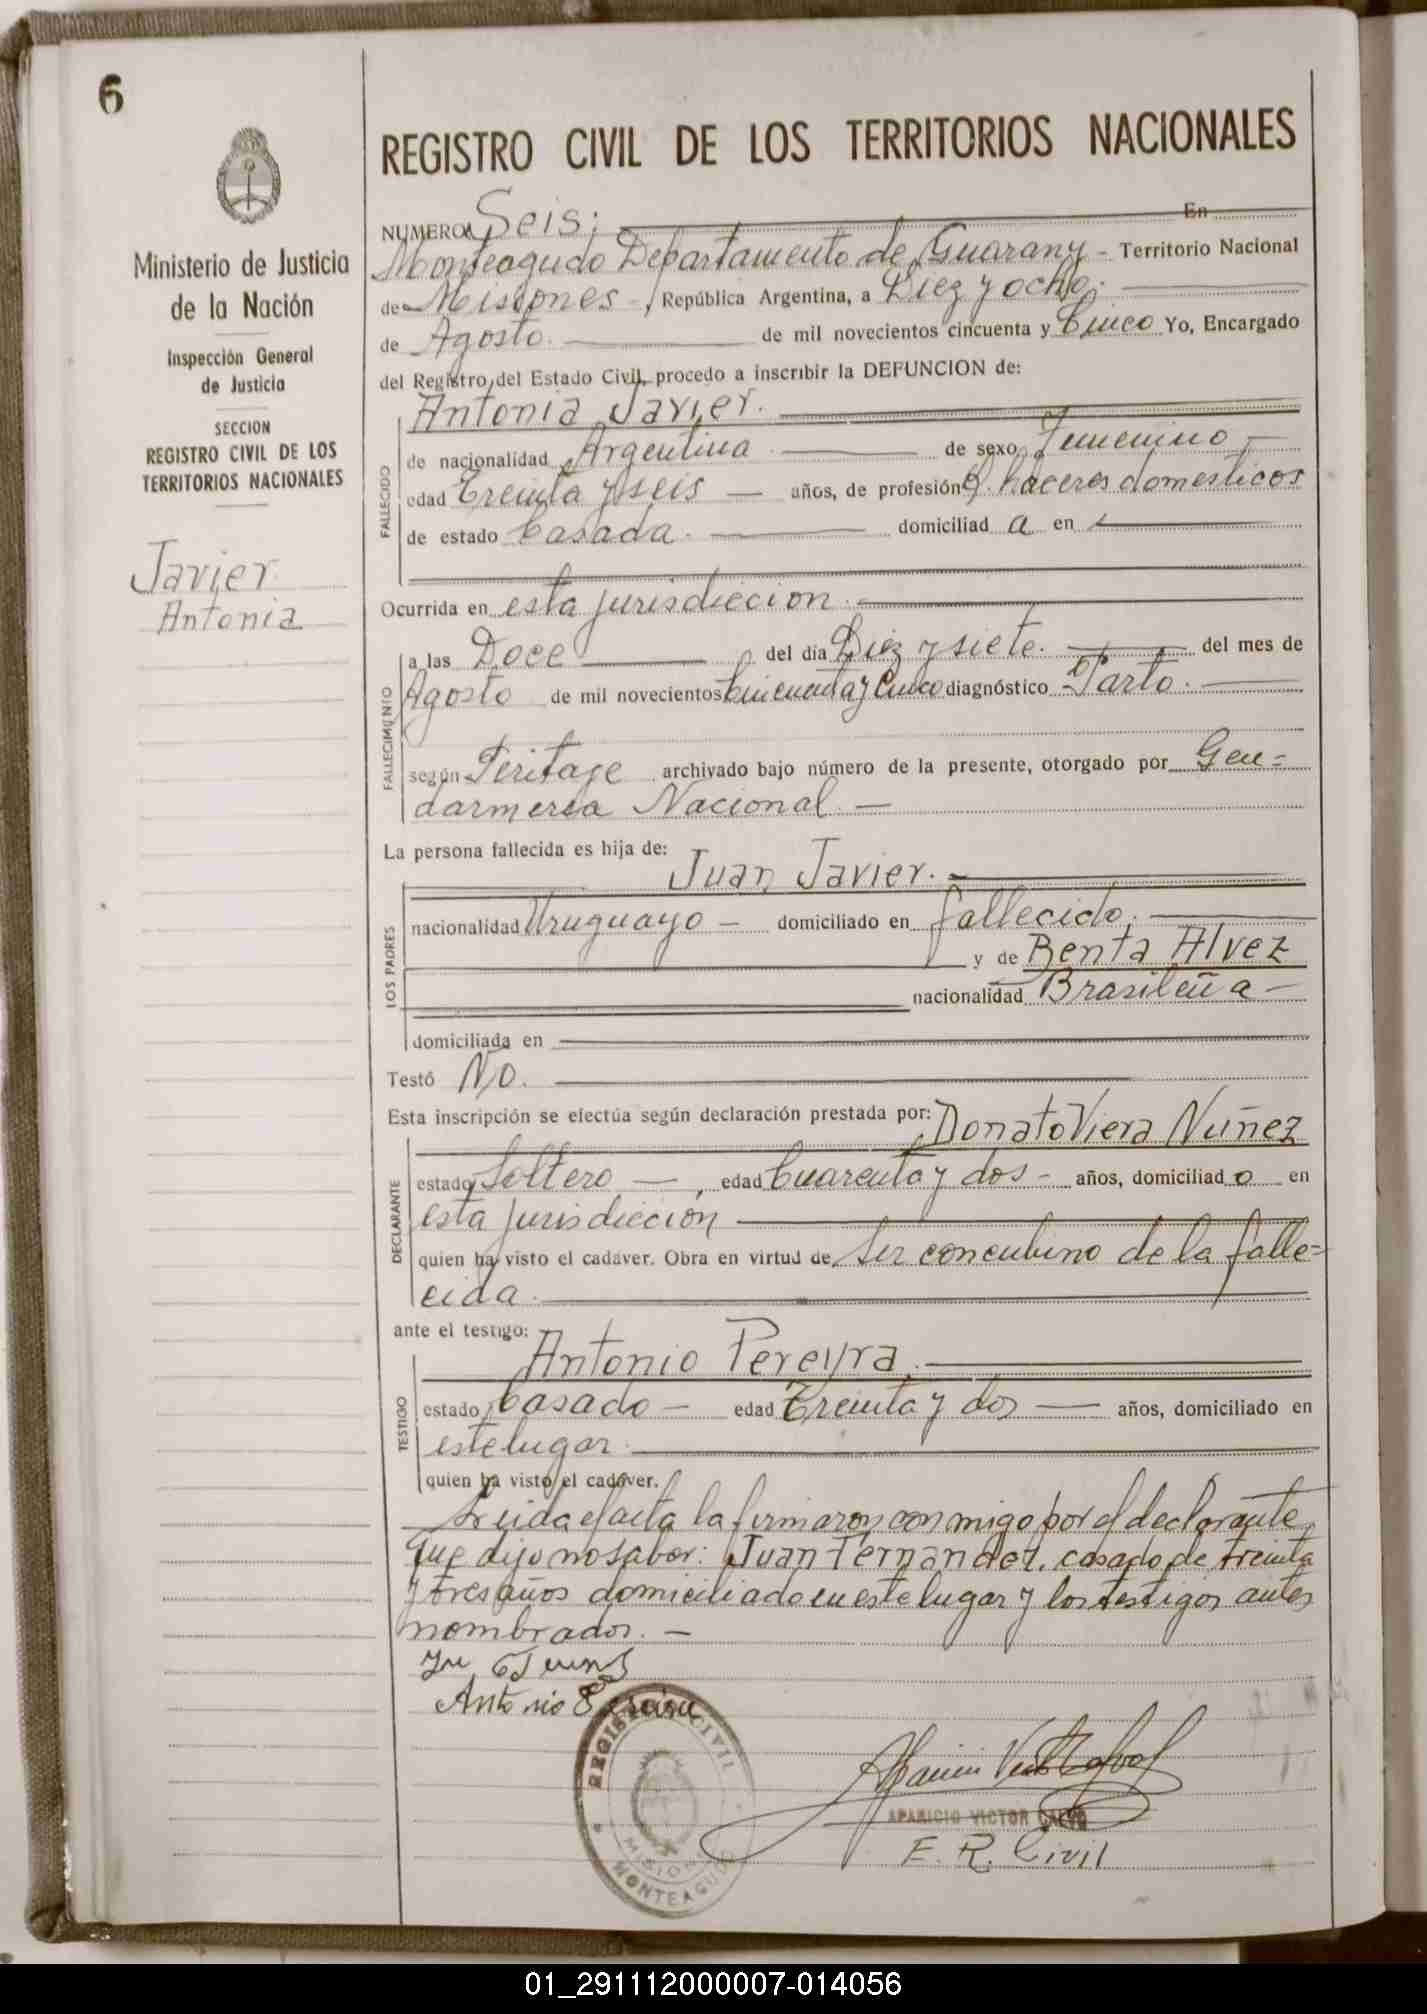 6
Ministerio de Justicia
de la Nación
Inspección General
de Justicia
SECCION
REGISTRO CIVIL DE LOS
TERRITORIOS NACIONALES
Javier
Antonia
REGISTRO CIVIL DE LOS TERRITORIOS NACIONALES
NUMERO Seis; En
Monteagudo Departamento de Guarany - Territorio Nacional
de Misiones -, República Argentina, a Diez y ocho.
de Agosto. de mil novecientos cincuenta y Cinco Yo, Encargado
del Registro del Estado Civil, procedo a inscribir la DEFUNCION de:
Antonia Javier.
FALLECIDO
de nacionalidad Argentina de sexo Femenino -
edad Treinta y seis - años, de profesión Q. haceres domesticos
de estado Casada. domiciliad a en
Ocurrida en esta jurisdiccion.
FALLECIMIENTO
a las Doce del día Diez y siete. del mes de
Agosto de mil novecientos Cincuenta y Cinco diagnóstico Parto.
según Peritaje archivado bajo número de la presente, otorgado por Gen=
darmeria Nacional. -
La persona fallecida es hija de:
Juan Javier.
LOS PADRES
nacionalidad Uruguayo - domiciliado en fallecido.
y de Benta Alvez
nacionalidad Brasileña -
domiciliada en
Testó No.
Esta inscripción se efectúa según declaración prestada por: Donato Viera Núñez
DECLARANTE
estado Soltero -, edad Cuarenta y dos - años, domiciliad o en
esta jurisdiccion
quien ha visto el cadáver. Obra en virtud de ser concubino de la falle=
cida.
ante el testigo:
Antonio Pereyra.
TESTIGO
estado Casado - edad Treinta y dos - años, domiciliado en
este lugar.
quien ha visto el cadáver.
Leida el acta la firmaron conmigo por el declarante
que dijo no saber: Juan Fernandez, casado de treinta
y tres años domiciliado en este lugar y los testigos antes
nombrados. -
Antonio
REGISTRO CIVIL
MISIONES
MONTEAGUDO
APARICIO VICTOR CALVO
E. R. Civil
01_291112000007-014056